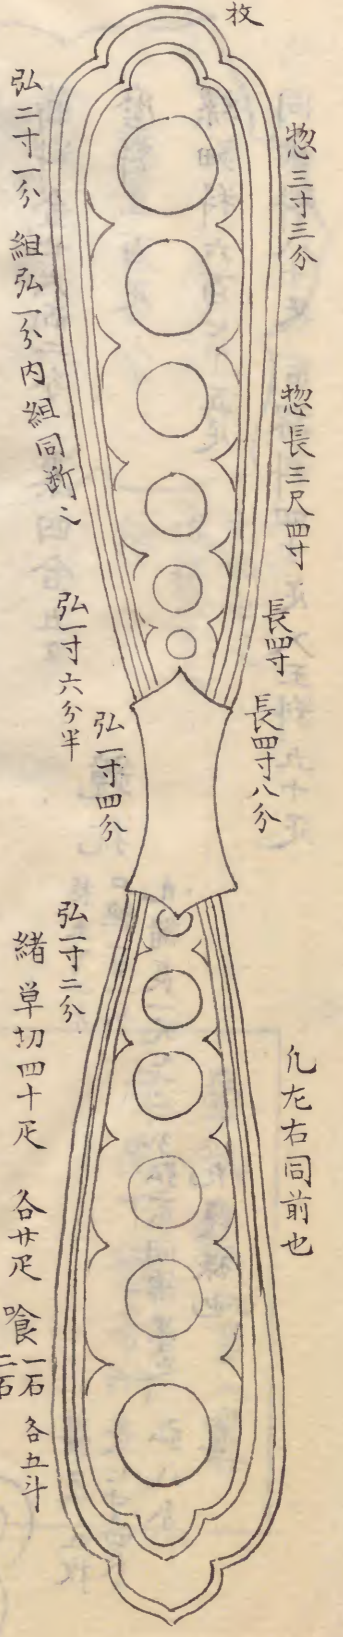 枚
惣三寸三分
惣長三尺四寸
長四寸
長四寸八分
凢左右同前也
弘二寸一分
組弘一分内組同断之
弘一寸六分半
弘一寸四分
弘一寸二分
緒
草切四十疋
各廿疋
喰
一石
二石
各五斗